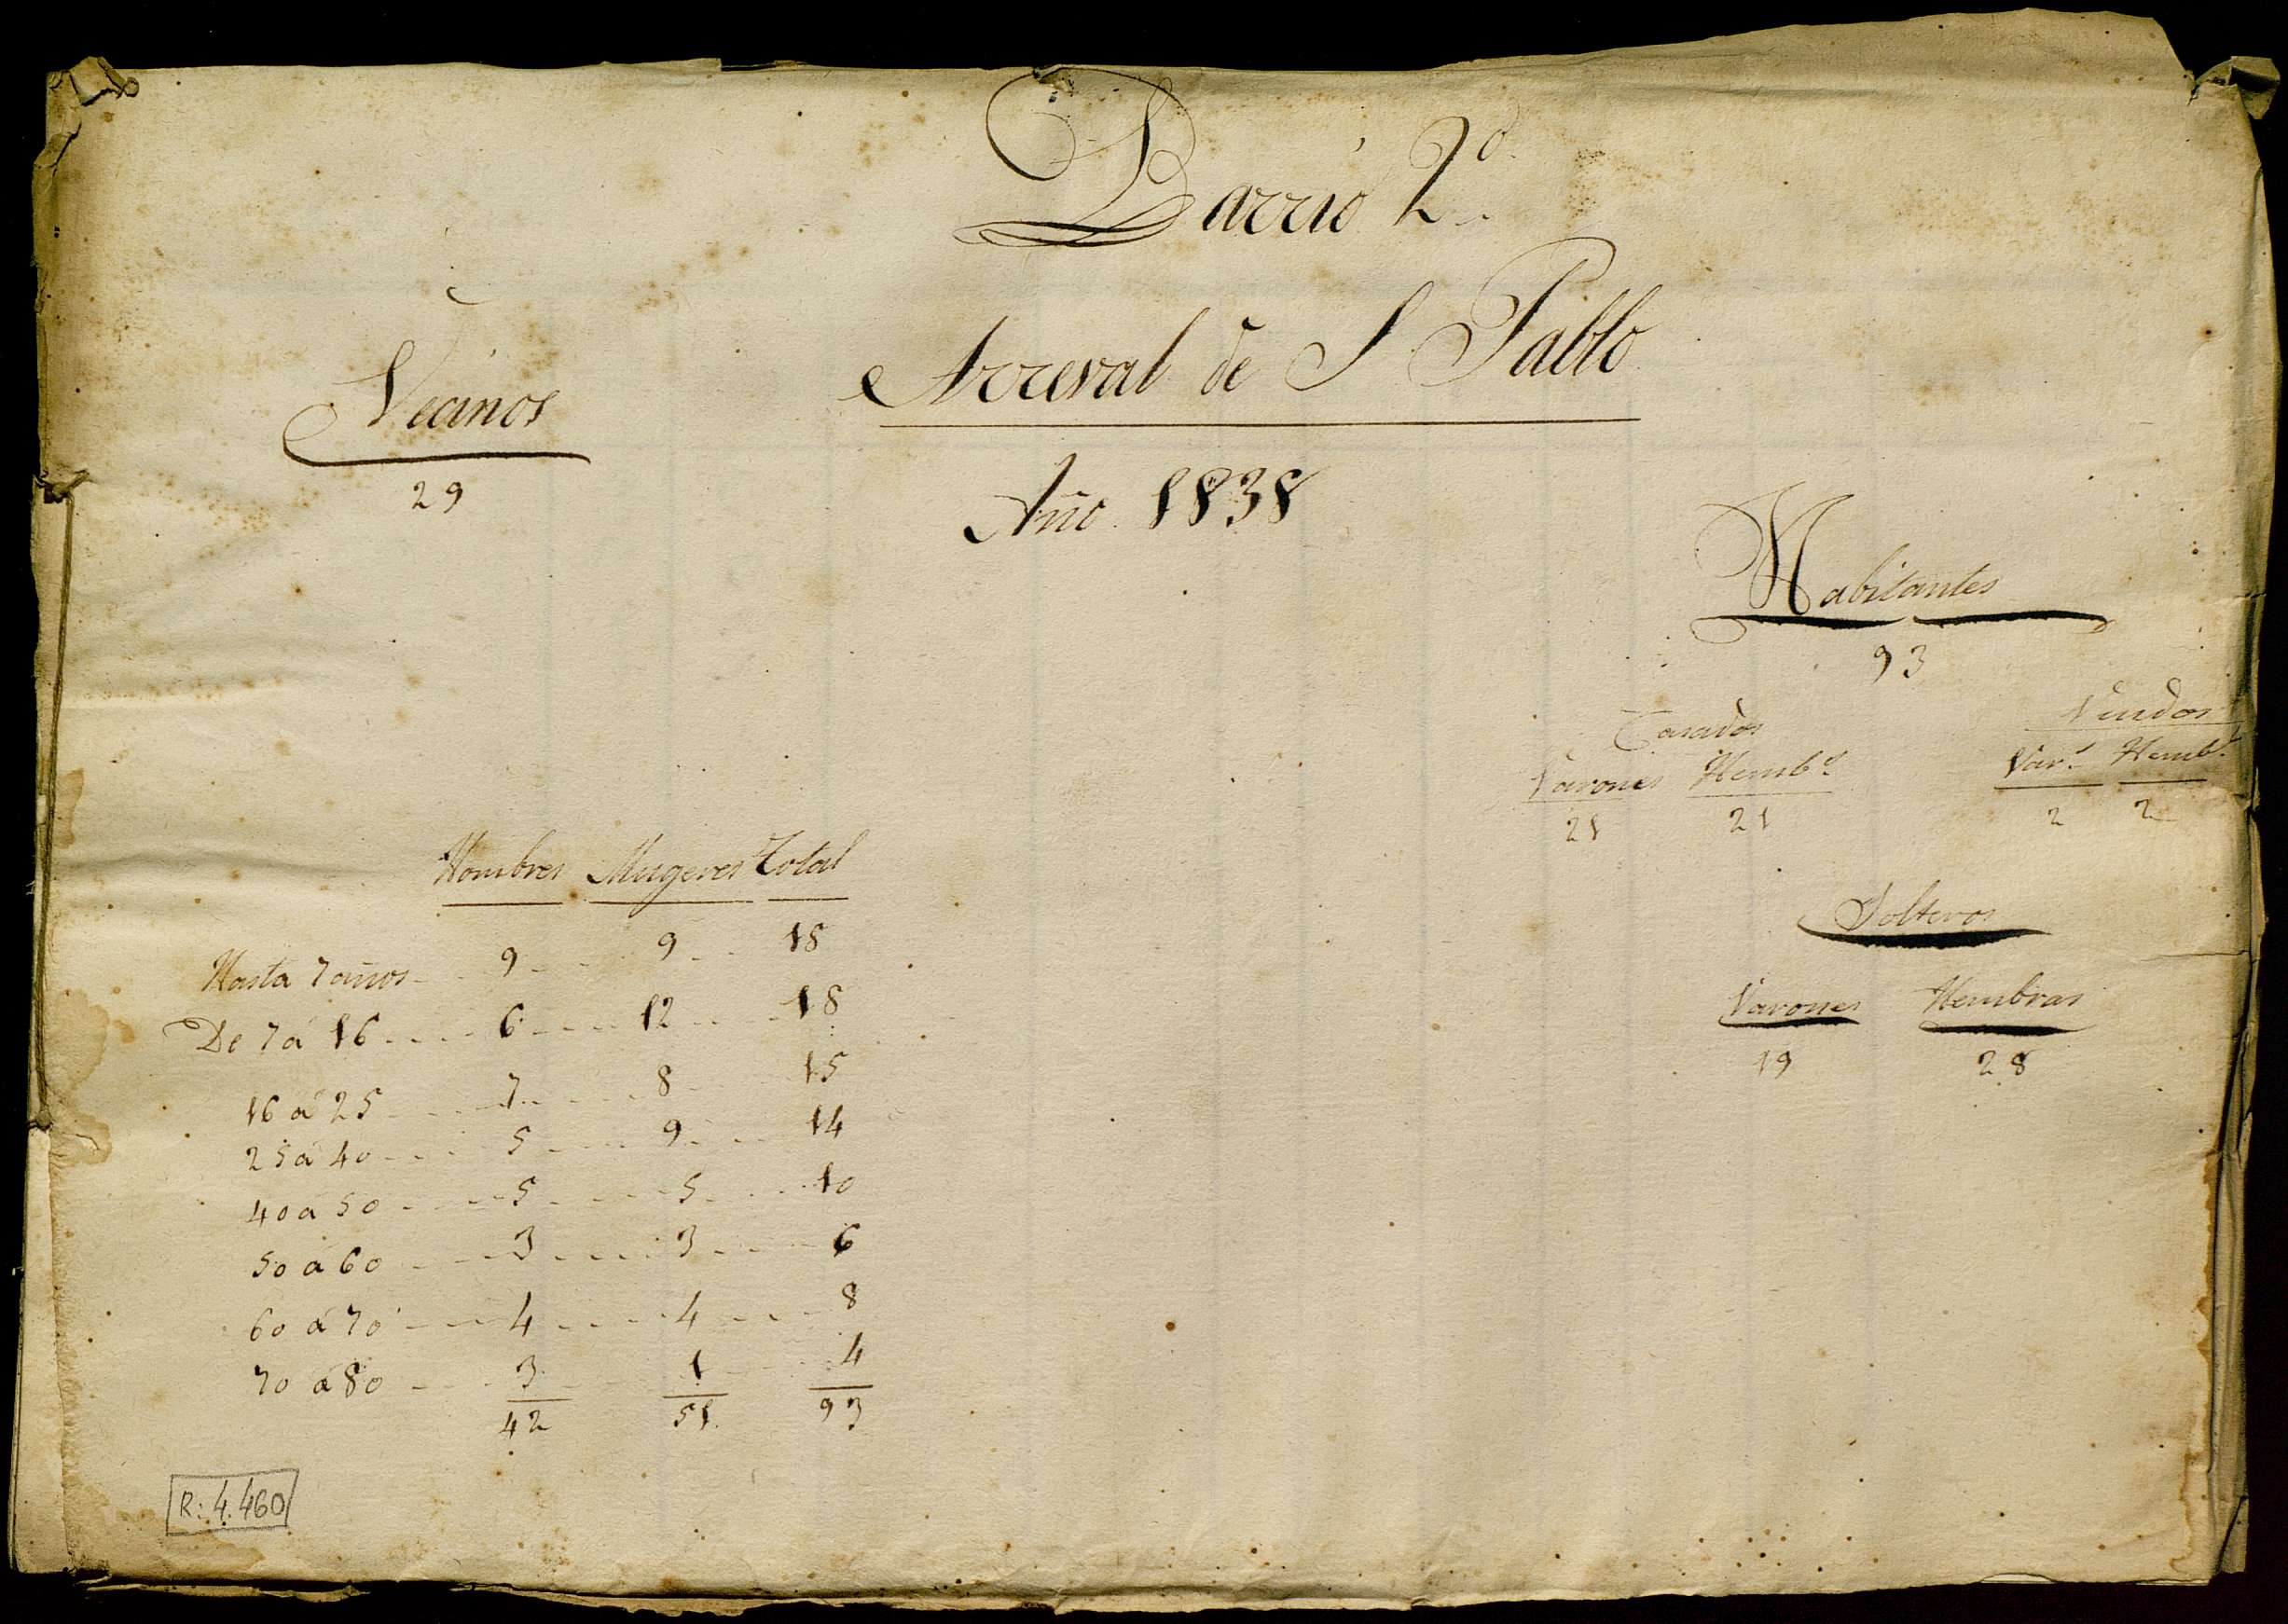 Barrio 2º
Arreval de S. Pablo
Año 1838
Vecinos
29
Habitantes
93
Casados
Varones Hemb.s
21 21
Viudos
Var.s Hemb.s
2 2
Solteros
Varones Hembras
19 28
Hombres Mugeres Total
Hasta 7 años 9 9 18
De 7 á 16 6 12 18
16 á 25 7 8 15
25 á 40 5 9 14
40 á 50 5 5 10
50 á 60 3 3 6
60 á 70 4 4 8
70 á 80 3 1 4
42 51 93
R: 4.460